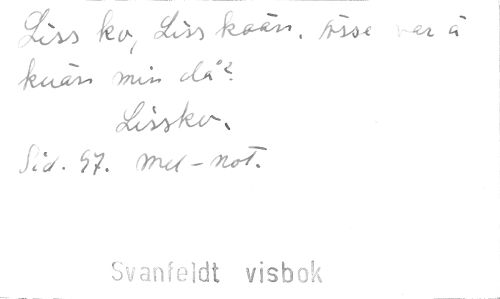 Liss ko, Liss koän. Åsse var å
kuän min då?
Lissko.
Sid. 57. mel-not.
Svanfeldt visbok